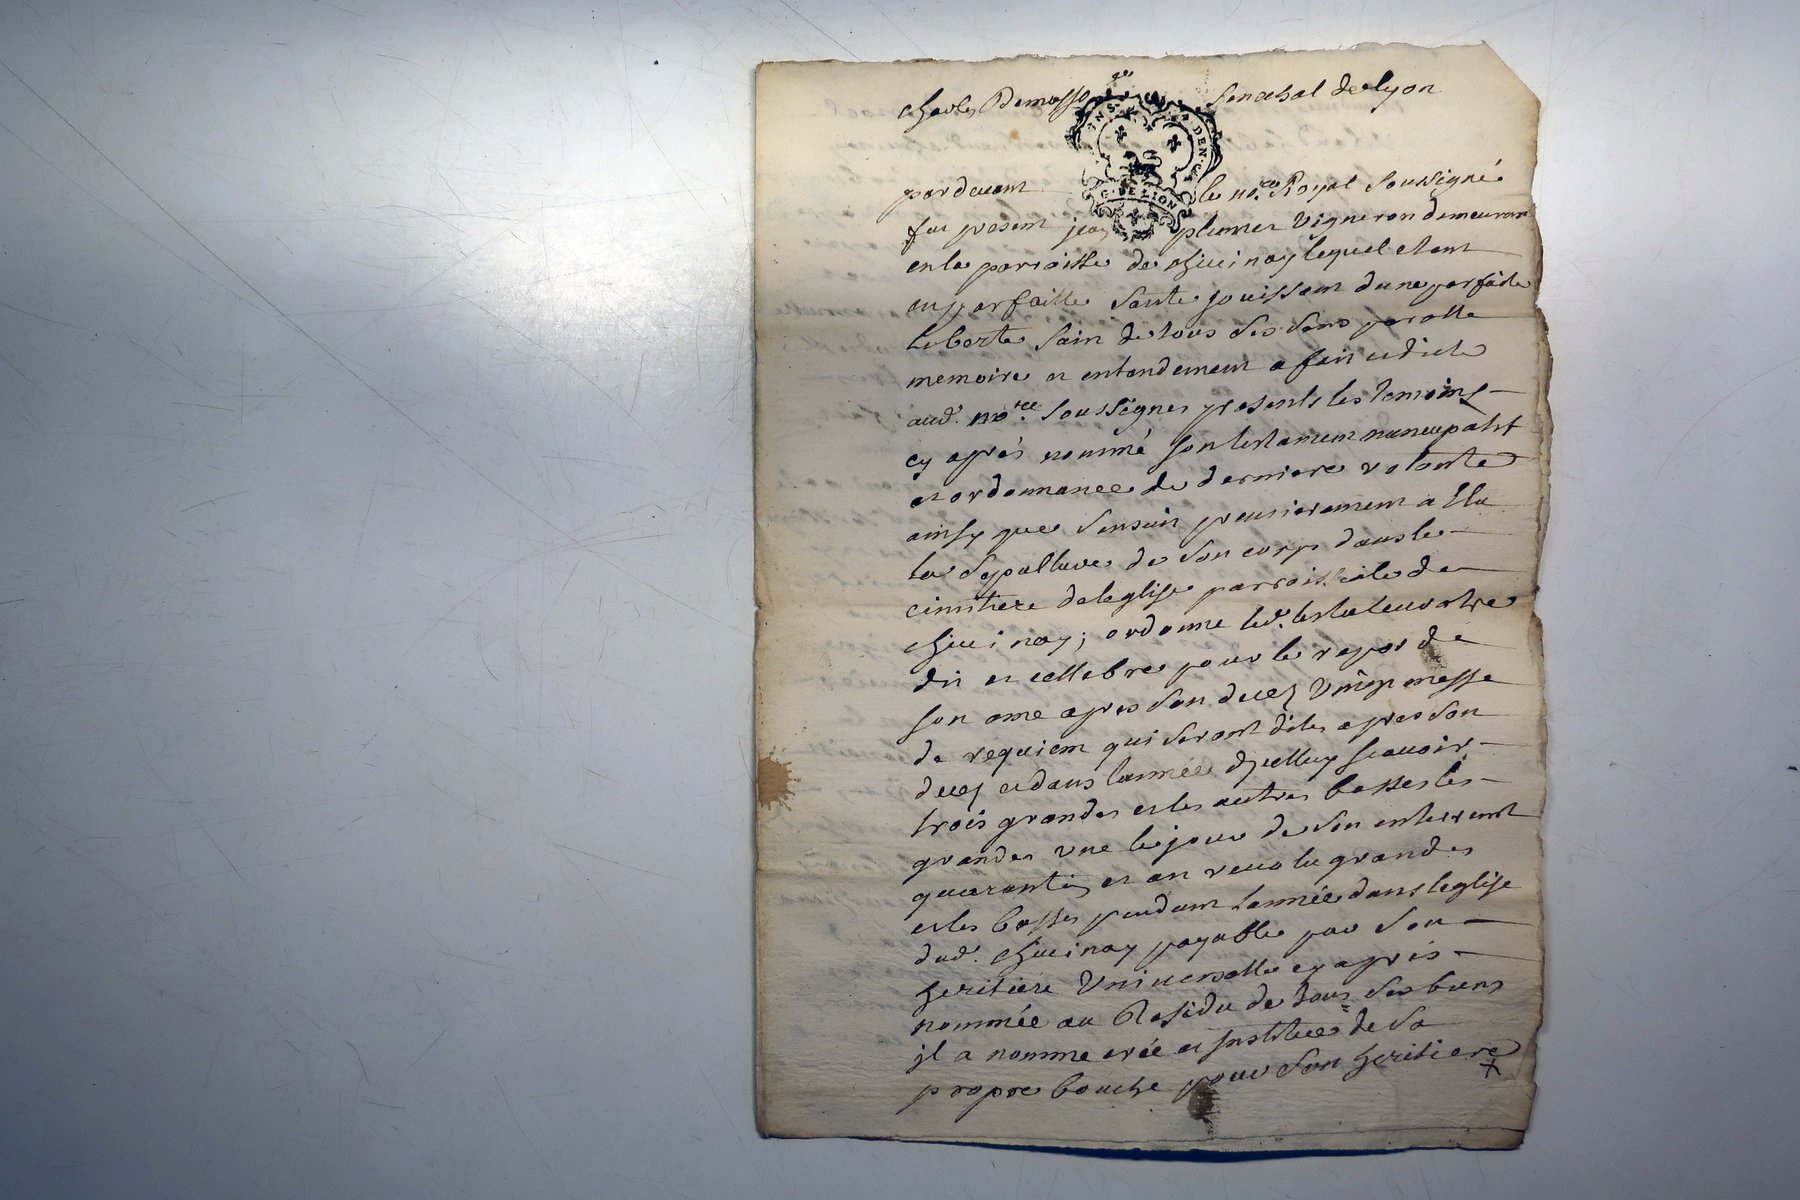 Charles Demasso ge Senechal de Lyon
INS DEN G DE LION
pardevant le nore Royal soussigné
fut present jean plumet vigneron demeurant
en la parroisse de Chiuinay lequel etant
en parfaitte santé jouissant dune parfaite
liberte sain de tous ses sens parolle
memoire et entendement a fait et dicte
aud. nore soussigner presents les temoins
cy aprés nommé son testament nuncupatif
et ordonnance de derniere volonte
ainsy que sensuit premierement a Elu
la sepulture de son corps dans le
cimitiere de leglise parroissiale de
Chiuinay; ordonne led. testateur otre
dit et cellebre pour le repos de
son ame apres son decez vingt messe
de requiem qui seront dites apres son
decez et dans lannée djcelluy scauoir
trois grandes et les autres basses les
grandes une le jour de son enterremt
quarantin et an reuolu grandes
et les basses pendant lannée dans leglise
dud. Chiuinay payable par son
heritiere Universelle cy aprés
nommée au Residu de tous ses biens
jl a nomme crée et jnstituee de sa
propre bouche pour son heritiere